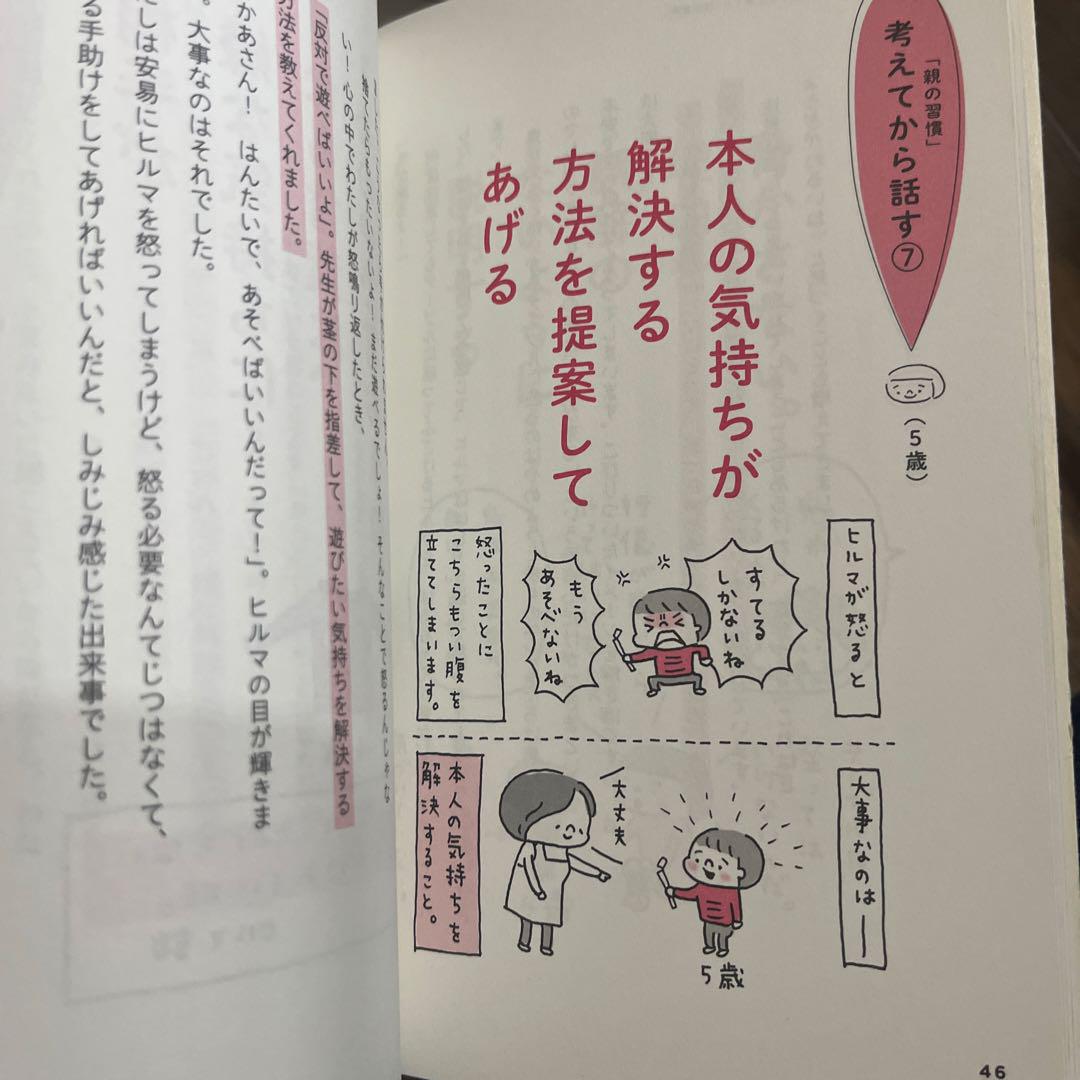 「親の習慣」
考えてから話す⑦
(5歳)
本人の気持ちが
解決する
方法を提案して
あげる
ヒルマが怒ると
すてる
しかないね
もう
あそべないね
怒ったことに
こちらもつい腹を
立ててしまいます。
大事なのは—
大丈夫
5歳
本人の気持ちを
解決すること。
46
捨てたらもったいないよ！まだ遊べるでしょ！そんなことで怒るんじゃな
い！心の中でわたしが怒鳴り返したとき、
「反対で遊べばいいよ」。先生が茎の下を指差して、遊びたい気持ちを解決する
方法を教えてくれました。
かあさん！　はんたいで、あそべばいいんだって！」。ヒルマの目が輝きま
。大事なのはそれでした。
しは安易にヒルマを怒ってしまうけど、怒る必要なんてじつはなくて、
る手助けをしてあげればいいんだと、しみじみ感じた出来事でした。